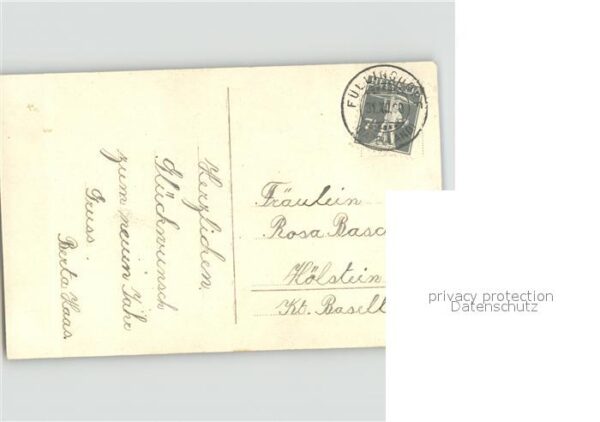 Herzlichen
Glückwunsch
zum neuin Jahr
Gruss.
Berta Haas.
FÜLLINSDORF
31.XII.
Fräulein
Rosa Basc
Hölstein
Kt. Basell
privacy protection
Datenschutz